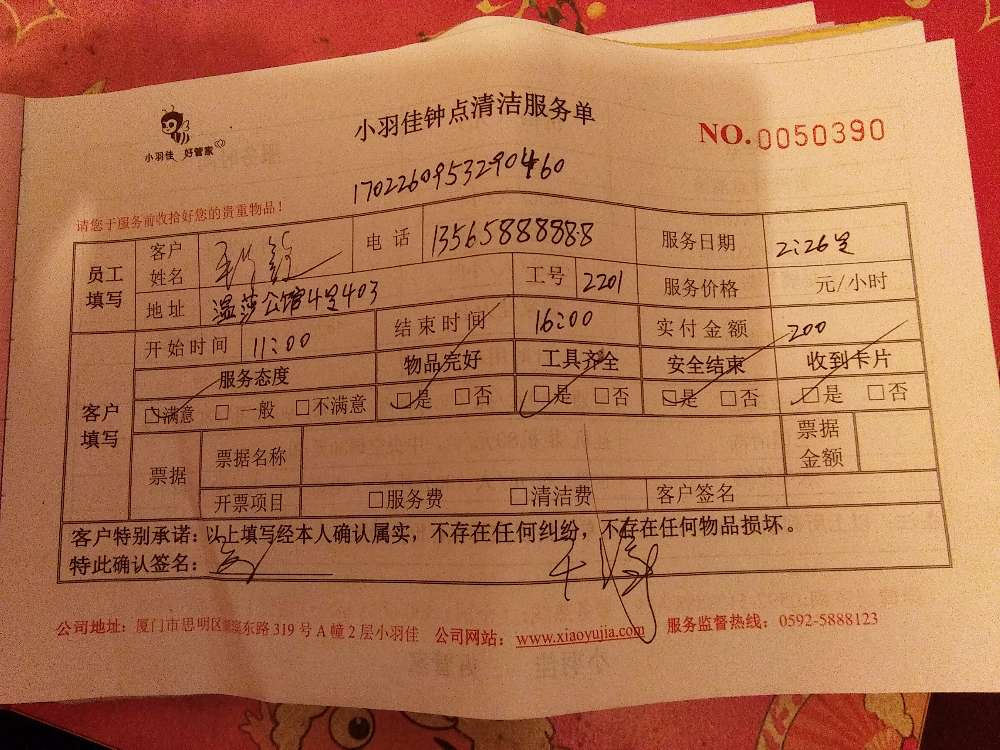 小羽佳 好管家
小羽佳钟点清洁服务单
NO.0050390
1702260953290460
请您于服务前收拾好您的贵重物品！
员工填写 客户姓名 电话 13565888888 服务日期 2:26号
地址 温莎公馆4号403 工号 2201 服务价格 元/小时
客户填写 开始时间 11:00 结束时间 16:00 实付金额 200
服务态度 物品完好 工具齐全 安全结束 收到卡片
☑满意 □一般 □不满意 ☑是 □否 ☑是 □否 ☑是 □否 ☑是 □否
票据 票据名称 票据金额
开票项目 □服务费 □清洁费 客户签名
客户特别承诺：以上填写经本人确认属实，不存在任何纠纷，不存在任何物品损坏。
特此确认签名：
公司地址：厦门市思明区东路319号A幢2层小羽佳 公司网站：www.xiaoyujia.com 服务监督热线：0592-5888123